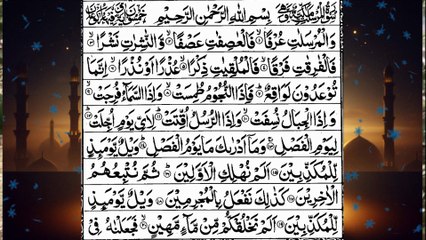 بِسْمِ اللّٰهِ الرَّحْمٰنِ الرَّحِیْمِ
وَالْمُرْسَلٰتِ عُرْفًا ۙ فَالْعٰصِفٰتِ عَصْفًا ۙ وَّالنّٰشِرٰتِ نَشْرًا ۙ
فَالْفٰرِقٰتِ فَرْقًا ۙ فَالْمُلْقِیٰتِ ذِكْرًا ۙ عُذْرًا اَوْ نُذْرًا ۙ اِنَّمَا
تُوْعَدُوْنَ لَوَاقِعٌ ؕ فَاِذَا النُّجُوْمُ طُمِسَتْ ۙ وَاِذَا السَّمَآءُ فُرِجَتْ ۙ
وَاِذَا الْجِبَالُ نُسِفَتْ ۙ وَاِذَا الرُّسُلُ اُقِّتَتْ ؕ لِاَیِّ یَوْمٍ اُجِّلَتْ ؕ
لِیَوْمِ الْفَصْلِ ۚ وَمَاۤ اَدْرٰىكَ مَا یَوْمُ الْفَصْلِ ؕ وَیْلٌ یَّوْمَىِٕذٍ
لِّلْمُكَذِّبِیْنَ اَلَمْ نُهْلِكِ الْاَوَّلِیْنَ ؕ ثُمَّ نُتْبِعُهُمُ
الْاٰخِرِیْنَ كَذٰلِكَ نَفْعَلُ بِالْمُجْرِمِیْنَ وَیْلٌ یَّوْمَىِٕذٍ
لِّلْمُكَذِّبِیْنَ اَلَمْ نَخْلُقْكُّمْ مِّنْ مَّآءٍ مَّهِیْنٍ ۙ فَجَعَلْنٰهُ فِیْ